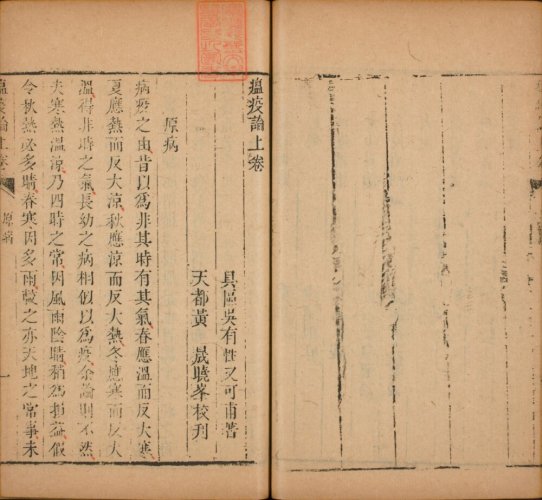 瘟疫論上卷
具區吳有性又可甫著
天都黃 晟曉峯校刋
原病
病疫之由昔以爲非其時有其氣春應溫而反大寒
夏應熱而反大涼秋應涼而反大熱冬應寒而反大
溫得非時之氣長幼之病相似以爲疫余論則不然
夫寒熱溫涼乃四時之常因風雨陰晴稍爲損益假
令秋熱必多晴春寒因多雨較之亦天地之常事未
瘟疫論上卷
原病
一